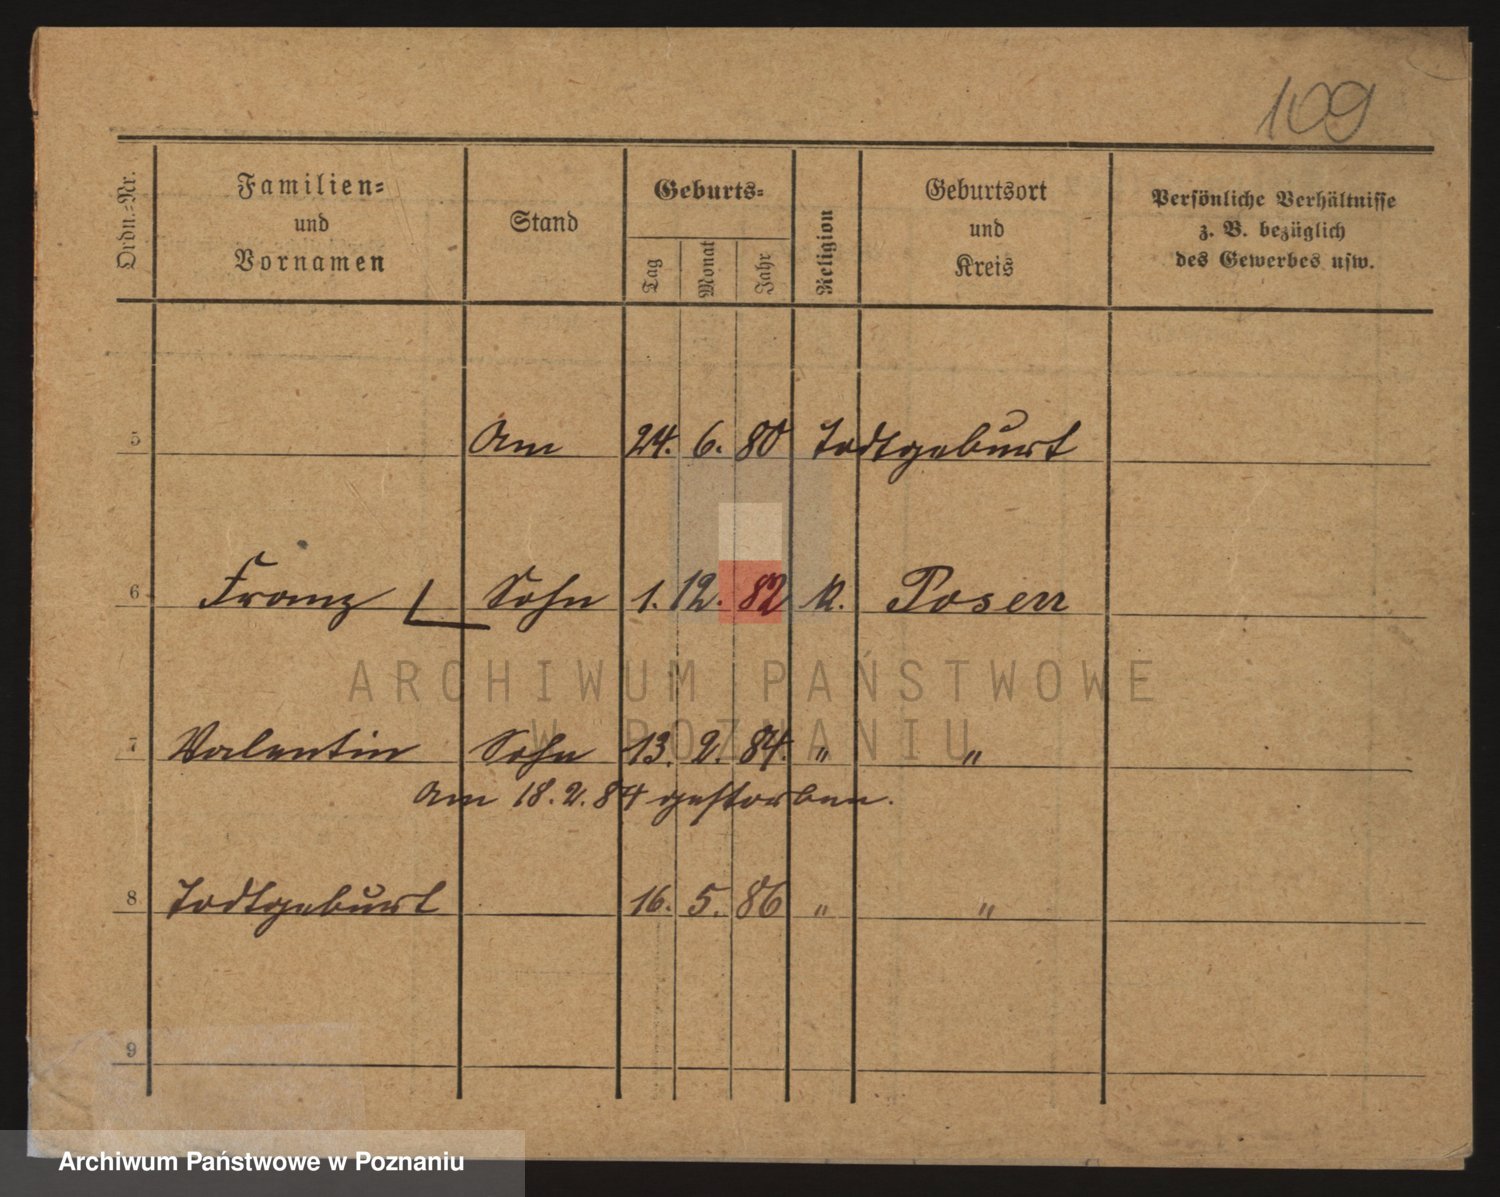 109
Ordn.=Nr. Familien= und Vornamen Stand Geburts= Tag Monat Jahr Religion Geburtsort und Kreis Persönliche Verhältnisse z. B. bezüglich des Gewerbes usw.
5 Am 24. 6. 80 Todtgeburt
6 Franz Sohn 1. 12. 82 k. Posen
ARCHIWUM PAŃSTWOWE
W POZNANIU
7 Valentin Sohn 13. 2. 84. " "
Am 18. 2. 84 gestorben.
8 Todtgeburt 16. 5. 86 " "
9
Archiwum Państwowe w Poznaniu